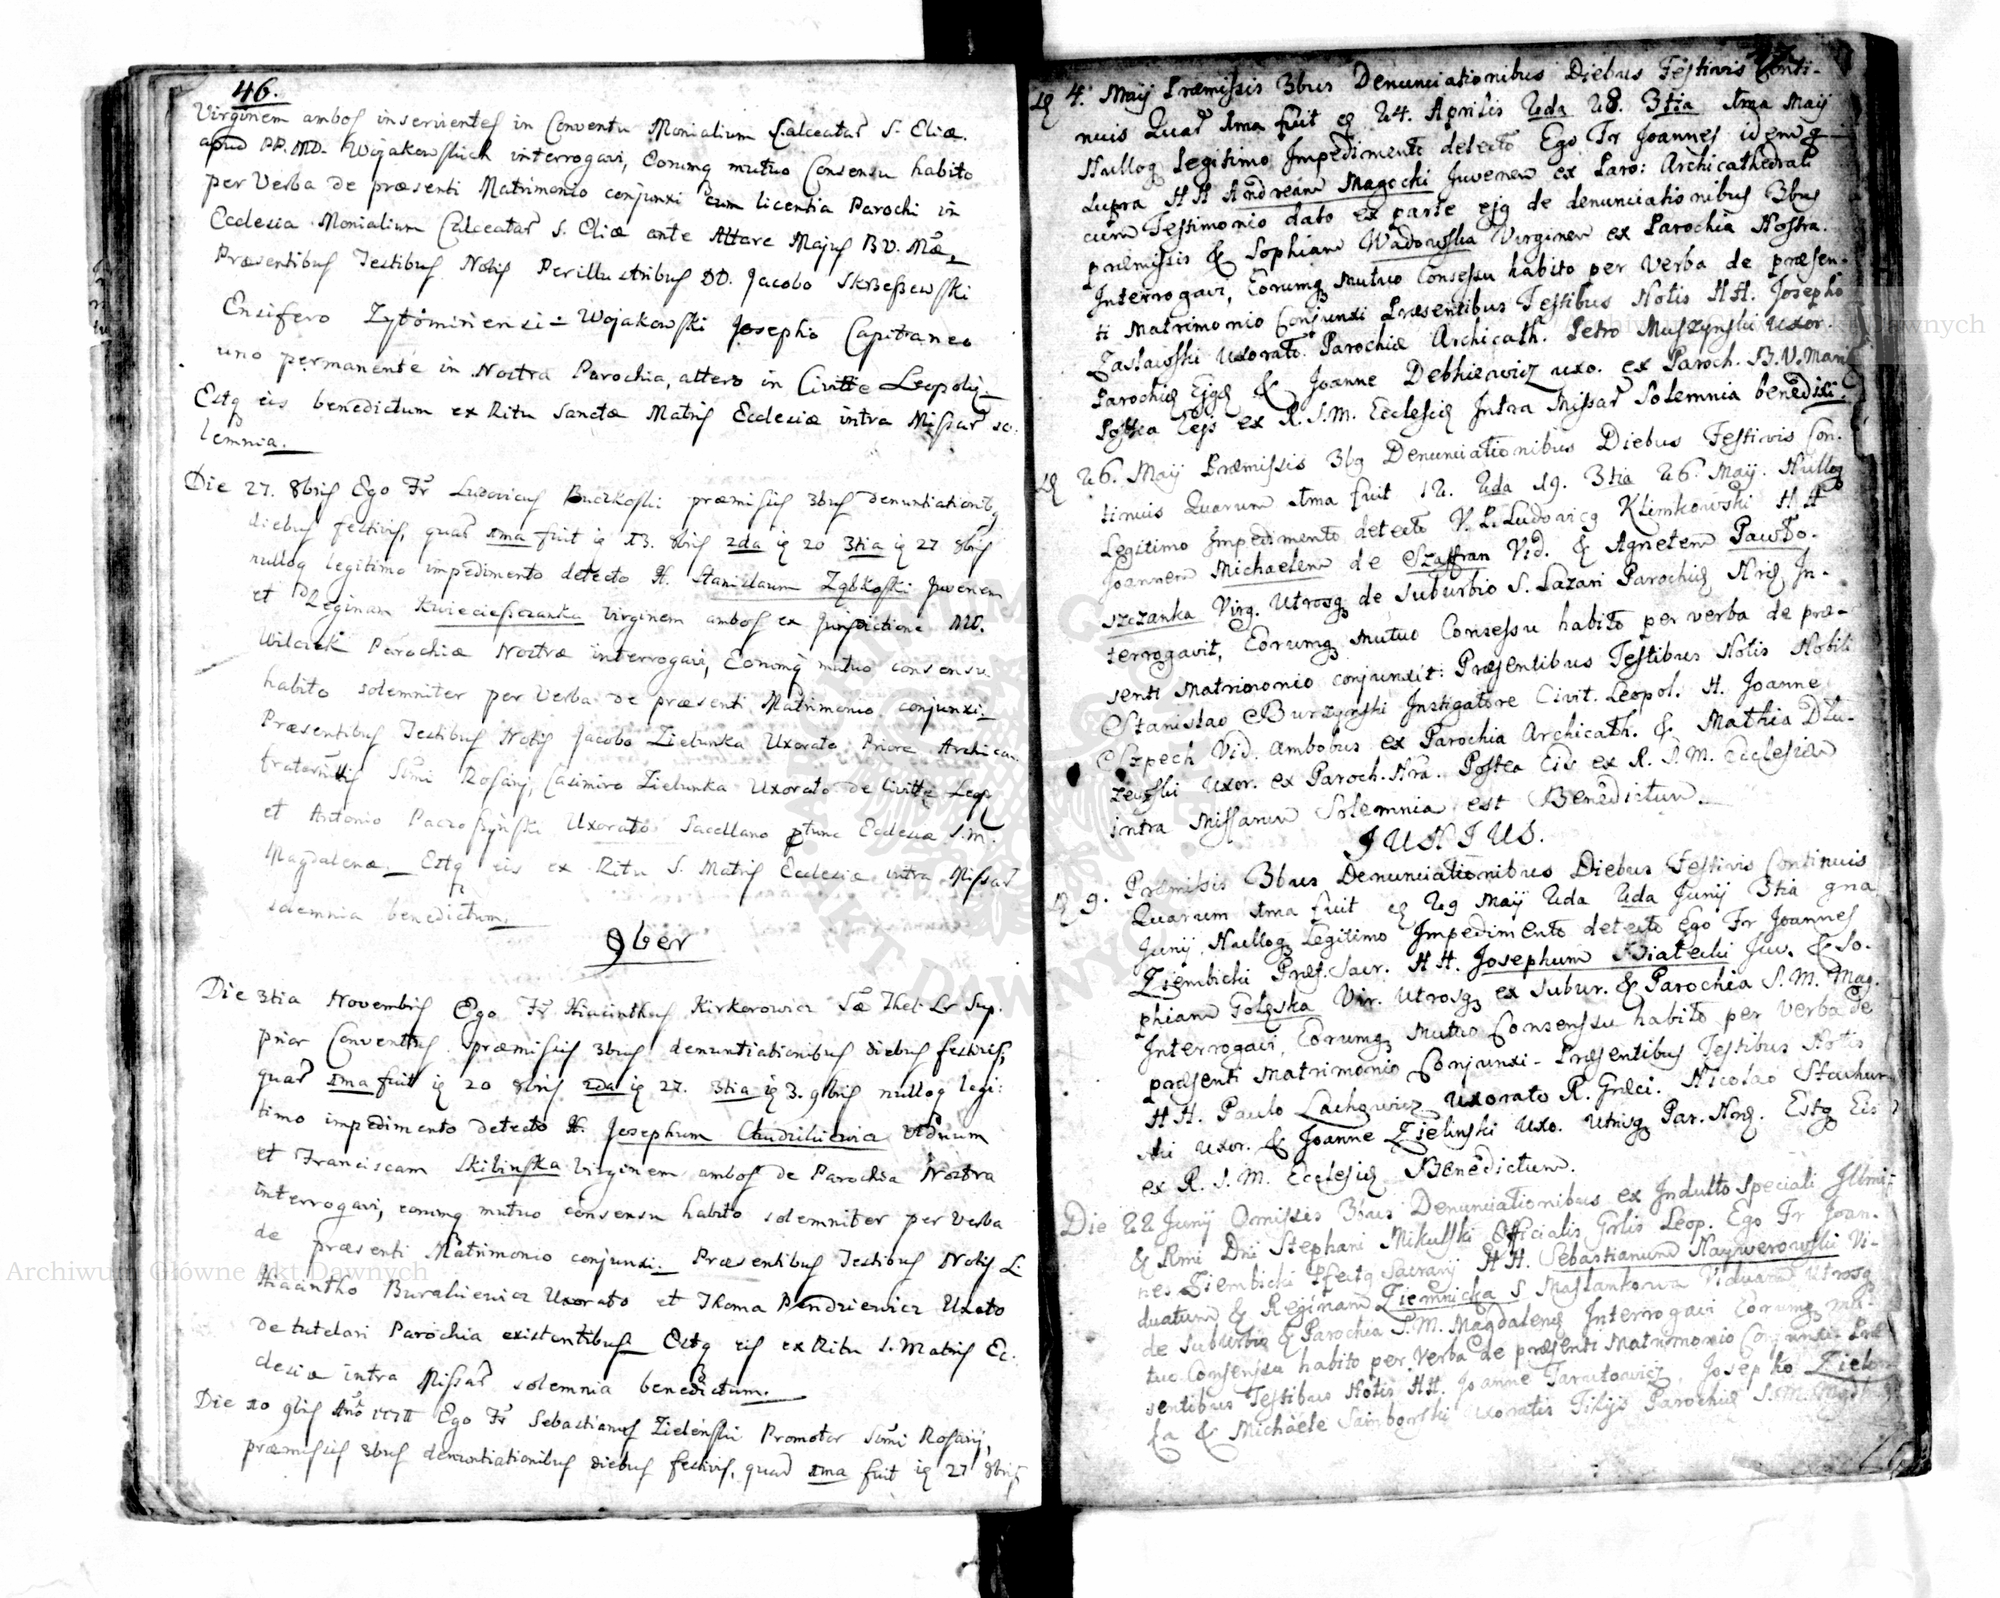 46.
Virginem ambos inservientes in Conventu Monialium Calceatar S. Eliæ
apud PP. MD. Wojakowskich interrogavi, Eorumq mutuo Consensu habito
per Verba de præsenti Matrimonio conjunxi cum licentia Parochi in
Ecclesia Monialium Calceatar S. Eliæ ante Altare Majus B.V. Mæ
Præsentibus Testibus Notis Perillustribus DD. Jacobo Skrzeszewski
Ensifero Zytomiriensi = Wojakowski Josepho Capitaneo
uno permanente in Nostra Parochia, altero in Civitte Leopoli
Estq eis benedictum ex Ritu Sanctæ Matris Ecclesiæ intra Missar so:
lemnia.
Die 27. 8bris Ego Fr Ludovicus præmissis 3bus denuntiationibq
diebus festivis, quar 1ma fuit iq 13. 8bris 2da iq 20 3tia iq 27 8bris
nulloq legitimo impedimento detecto H. Stanislaum Ząbkoski Juvenem
et Reginam Kwiecieszczanka Virginem ambos ex Jurisdictione MD.
Wilczek Parochiæ Nostræ interrogavi, Eorumq mutuo consensu
habito solemniter per Verba de præsenti Matrimonio conjunxi.
Præsentibus Testibus Notis Jacobo Zielunka Uxorato Priore Archicon
fraternitis Smi Rosarij, Casimiro Zielunka Uxorato de Civitte Leop.
et Antonio Uxorato Sacellano ptunc Ecclesiæ S. M.
Magdalenæ. Estq eis ex Ritu S. Matris Ecclesiæ intra Missar
solemnia benedictum.
9ber
Die 3tia Novembris Ego Fr Hiacinthus Kirkorowicz Sæ Thel. Lr Sup.
prior Conventus præmissis 3bus denuntiationibus diebus festivis,
quar 1ma fuit iq 20 8bris 2da iq 27. 3tia iq 3. 9bris nulloq legi:
timo impedimento detecto H. Josephum Chudzikiewicz Viduum
et Franciscam Skibinska Virginem ambos de Parochia Nostra
interrogavi, eorumq mutuo consensu habito solemniter per Verba
de præsenti Matrimonio conjunxi. Præsentibus Testibus Notis
Hiacintho Burakiewicz Uxorato et Thoma Pendziewicz Uxorato
de tutelari Parochia existentibus Estq eis ex Ritu S. Matris Ec:
clesiæ intra Missar solemnia benedictum.
Die 10 9bris Ano Ego Fr Sebastianus Zielenski Promotor Smi Rosarij,
præmissis 3bus denuntiationibus diebus festivis, quar 1ma fuit iq 27 8bris
4. Maij Præmissis 3bus Denunciationibus Diebus Festivis Conti-
nuis Quar 1ma fuit 24. Aprilis 2da 28. 3tia 1ma Maij
Nulloq Legitimo Impedimento detecto Ego Fr Joannes idem q
supra HH Andream Magocki Juvenem ex Paro: Archicathedrali
cum Testimonio dato ex parte ejq de denunciationibus 3bus
præmissis & Sophiam Wadowska Virginem ex Parochia Nostra.
Interrogavi, Eorumq mutuo Consessu habito per Verba de præsen-
ti Matrimonio Conjunxi Præsentibus Testibus Notis HH. Josepho
Zaslawski Uxorato Parochiæ Archicath. Petro Muszynski Uxor.
Parochiæ Ejqd & Joanne Debkiewicz uxo. ex Paroch. B.V. Mariæ
Postea Ejs ex R. S. M. Ecclesiæ Intra Missar Solemnia benedixi.
26. Maij Præmissis 3bq Denunciationibus Diebus Festivis Con-
tinuis Quarum 1ma fuit 12. 2da 19. 3tia 26. Maij. Nulloq
Legitimo Impedimento detecto V. P. Ludovicq Klimkowski HH
Joannem Michaelem de Szaffran Vid. & Agnetem Pawło-
szczanka Virg. Utrosq de suburbio S. Lazari Parochiæ Nræ In-
terrogavit, Eorumq mutuo Consessu habito per verba de præ-
senti Matrimonio conjunxit: Præsentibus Testibus Notis Nobili
Stanislao Burzynski Instigatore Civit. Leopol. H. Joanne
Szpech Vid. ambobus ex Parochia Archicath. & Mathia Dłu-
Uxor. ex Paroch. Nra. Postea Eis ex R. S. M. Ecclesiæ
intra Missarum Solemnia est Benedictum.
JUNIUS.
9. Præmissis 3bus Denunciationibus Diebus Festivis Continuis
Quarum 1ma fuit 29 Maij 2da 2da Junij 3tia 9na
Junij. Nulloq Legitimo Impedimento detecto Ego Fr Joannes
Ziembicki Præf. Sacr. HH. Josephum Białecki Juv. & So-
phiam Golęska Vir. Utrosq ex subur. & Parochia S. M. Mag.
Interrogavi, Eorumq Mutuo Consenssu habito per Verba de
præsenti Matrimonio Conjunxi. Præsentibus Testibus Notis
HH. Paulo Lachowicz Uxorato R. Græci. Nicolao Stachur
ski uxor. & Joanne Zielinski Uxo. Utrisq Par. Nræ. Estq Eis
ex R. S. M. Ecclesiæ Benedictum.
Die 22 Junij Omissis 3bus Denunciationibus ex Indulto Speciali Illmi
& Rmi Dni Stephani Mikulski Officialis Grlis Leop. Ego Fr Joan-
nes Ziembicki Pfectq Sacrarij HH. Sebastianum Naywerowski Vi-
duatum & Reginam Ziemnicka S Maslankowa Viduam Utrosq
de Suburbio & Parochia S. M. Magdalenæ Interrogavi Eorumq mu-
tuo Consenssu habito per Verba de præsenti Matrimonio Conjunxi. Præ
sentibus Testibus Notis HH. Joanne Tarutowicz, Josepho Zielon
ka & Michaele Samborski Uxoratis Filijs Parochiæ S. M. Magd.
Archiwum Główne Akt Dawnych
Archiwum Główne Akt Dawnych